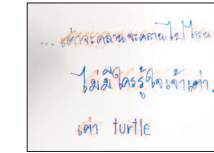 ... เต่าจะคลานจะคลานไปไหน
ไม่มีใครรู้ใจเจ้าเต่า.
เต่า turtle